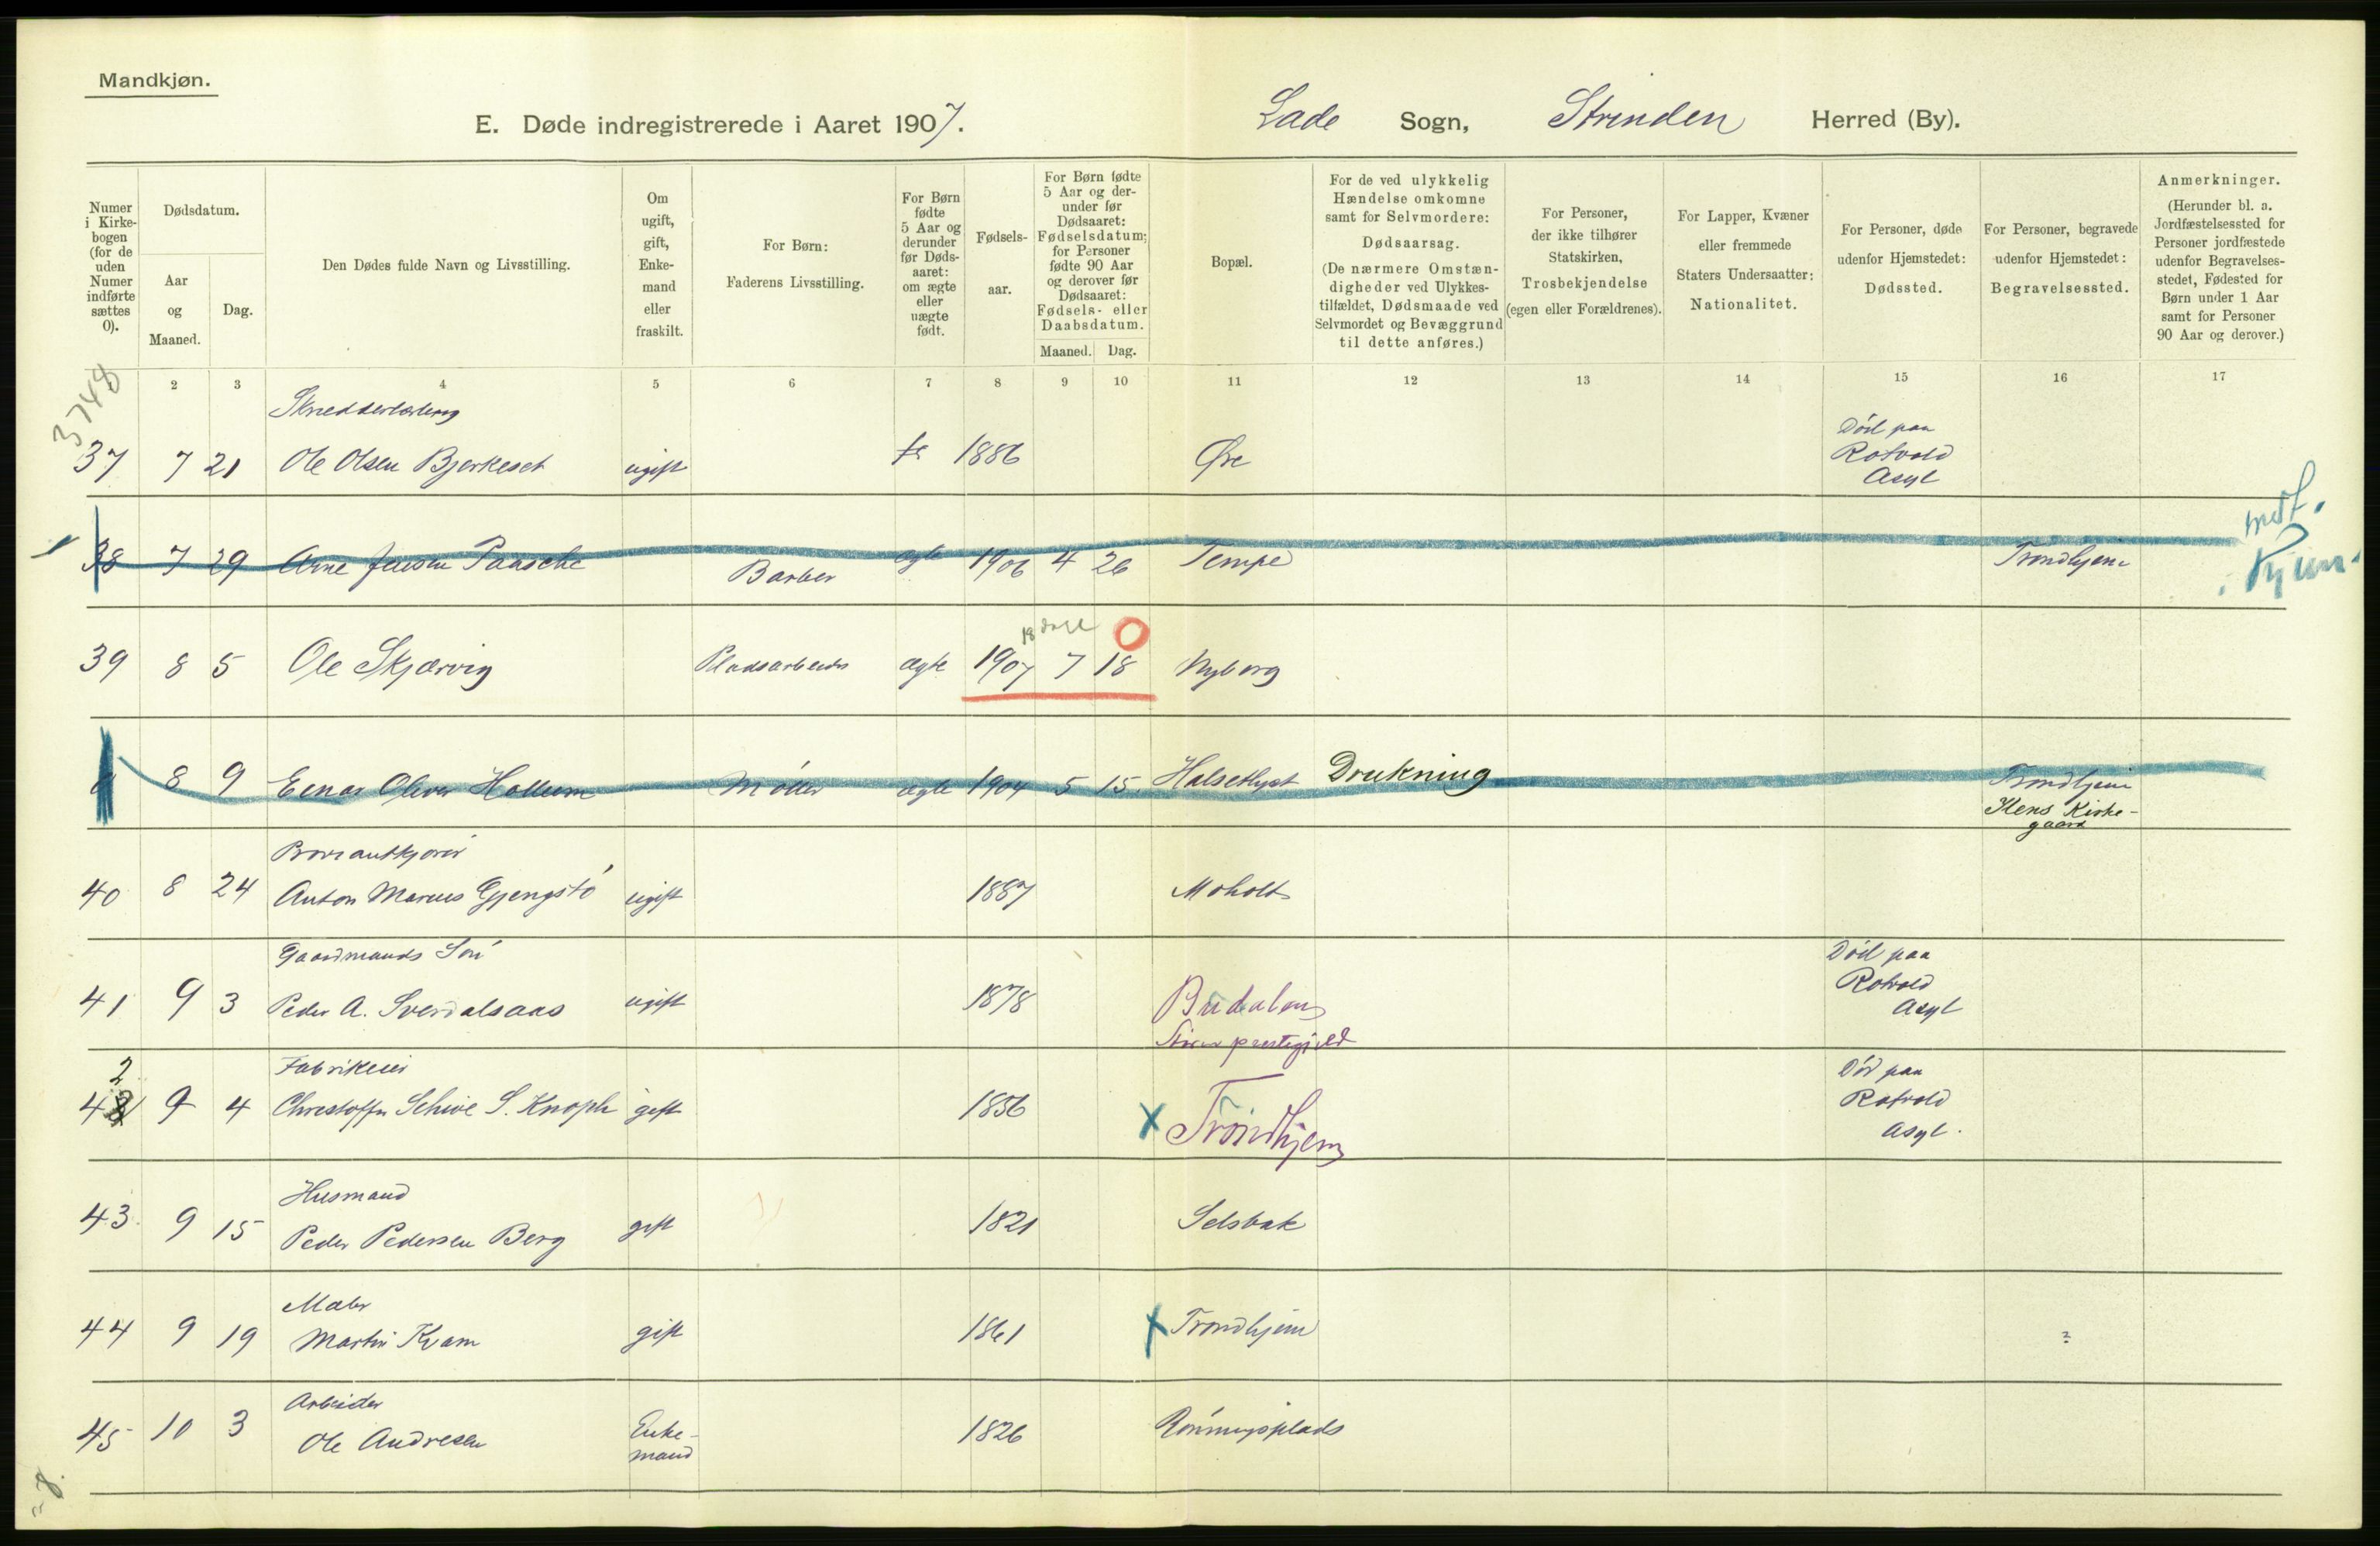 Mandkjøn.
E. Døde indregistrerede i Aaret 1907.
Lade Sogn, Strinden Herred (By).
Numer i Kirkebogen (for de uden Numer indførte sættes 0).
Dødsdatum.
Aar og Maaned.
Dag.
Den Dødes fulde Navn og Livsstilling.
Om ugift, gift, Enkemand eller fraskilt.
For Børn: Faderens Livsstilling.
For Børn fødte 5 Aar og derunder før Dødsaaret: om ægte eller uægte født.
Fødselsaar.
For Børn fødte 5 Aar og derunder før Dødsaaret: Fødselsdatum; for Personer fødte 90 Aar og derover før Dødsaaret: Fødsels- eller Daabsdatum.
Maaned. Dag.
Bopæl.
For de ved ulykkelig Hændelse omkomne samt for Selvmordere: Dødsaarsag. (De nærmere Omstændigheder ved Ulykkestilfældet, Dødsmaade ved Selvmordet og Bevæggrund til dette anføres.)
For Personer, der ikke tilhører Statskirken, Trosbekjendelse (egen eller Forældrenes).
For Lapper, Kvæner eller fremmede Staters Undersaatter: Nationalitet.
For Personer, døde udenfor Hjemstedet: Dødssted.
For Personer, begravede udenfor Hjemstedet: Begravelsessted.
Anmerkninger. (Herunder bl. a. Jordfæstelsessted for Personer jordfæstede udenfor Begravelsesstedet, Fødested for Børn under 1 Aar samt for Personer 90 Aar og derover.)
2 3 4 5 6 7 8 9 10 11 12 13 14 15 16 17
3748
Skredderlærling
37 7 21 Ole Olsen Bjerkeset ugift 1886 Øre Død paa Rotvold Asyl
38 7 29 Arne Jensen Paasche Barber ægte 1906 4 26 Tempe Trondhjem
39 8 5 Ole Skjærvig Pladsarbeider ægte 1907 7 18 Nyborg
18 dage
0
0 8 9 Einar Oliver Hollum Møller ægte 1904 5 15 Halsetlyst Drukning Trondhjem
Ilens Kirkegaard
Proviantkjører
40 8 24 Anton Marius Gjengstø ugift 1887 Moholt
Gaardmands Søn
41 9 3 Peder A. Sverdalsaas ugift 1878 Budalen Død paa Rotvold Asyl
Støren prestegjeld
Fabrikeier
42 9 4 Christoffer Schive S. Knoph gift 1856 x Trondhjem Død paa Rotvold Asyl.
Husmand
43 9 15 Peder Pedersen Berg gift 1821 Selsbak
Maler
44 9 19 Martin Kvam gift 1861 x Trondhjem ?
Arbeider
45 10 3 Ole Andresen Enkemand 1826 Rønningsplads